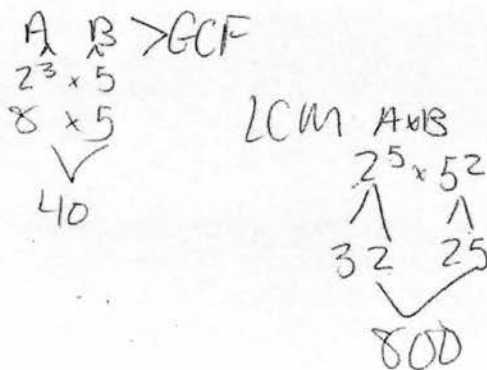 A B >GCF
2³ × 5
8 × 5
40
LCM A×B
2⁵ × 5²
32 25
800